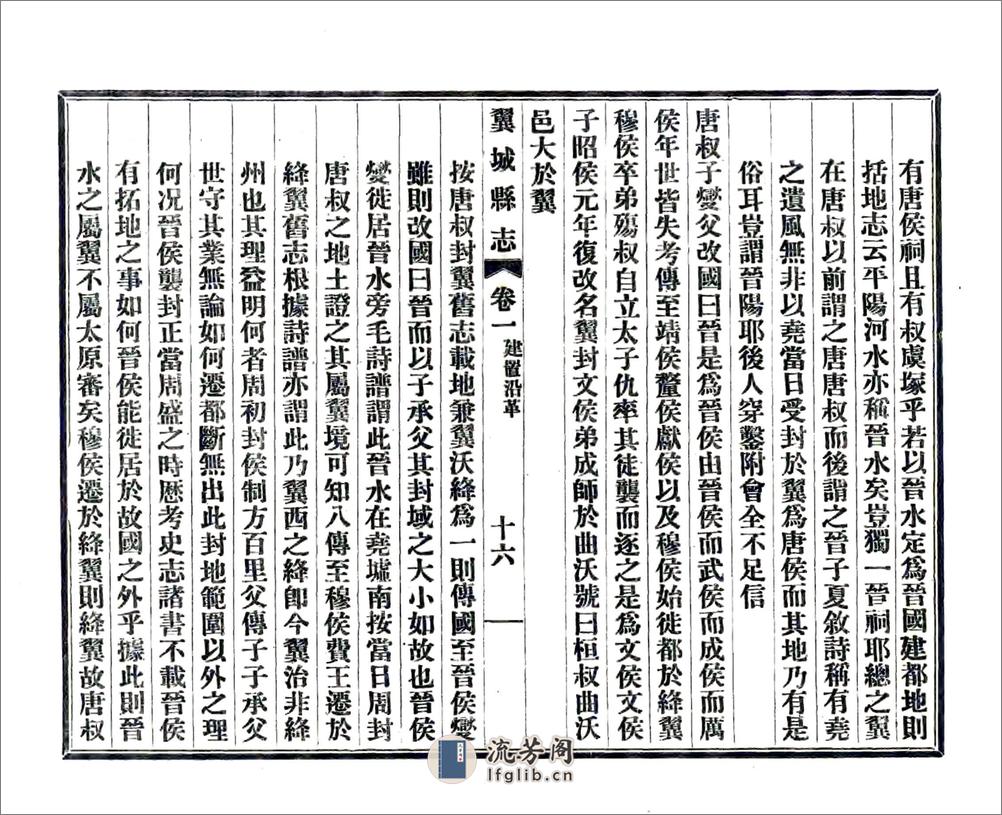 有唐侯祠且有叔虞塚乎若以晉水定爲晉國建都地則
括地志云平陽河水亦稱晉水矣豈獨一晉祠耶總之翼
在唐叔以前謂之唐唐叔而後謂之晉子夏敘詩稱有堯
之遺風無非以堯當日受封於翼爲唐侯而其地乃有是
俗耳豈謂晉陽耶後人穿鑿附會全不足信
唐叔子燮父改國曰晉是爲晉侯由晉侯而武侯而成侯而厲
侯年世皆失考傳至靖侯釐侯獻侯以及穆侯始徙都於絳翼
穆侯卒弟殤叔自立太子仇率其徒襲而逐之是爲文侯文侯
子昭侯元年復改名翼封文侯弟成師於曲沃號曰桓叔曲沃
邑大於翼
翼城縣志 卷一 建置沿革 十六
按唐叔封翼舊志載地兼翼沃絳爲一則傳國至晉侯燮
雖則改國曰晉而以子承父其封域之大小如故也晉侯
燮徙居晉水旁毛詩譜謂此晉水在堯墟南按當日周封
唐叔之地土證之其屬翼境可知八傳至穆侯費王遷於
絳翼舊志根據詩譜亦謂此乃翼西之絳卽今翼治非絳
州也其理益明何者周初封侯制方百里父傳子子承父
世守其業無論如何遷都斷無出此封地範圍以外之理
何况晉侯襲封正當周盛之時歷考史志諸書不載晉侯
有拓地之事如何晉侯能徙居於故國之外乎據此則晉
水之屬翼不屬太原審矣穆侯遷於絳翼則絳翼故唐叔
流芳阁
lfglib.cn